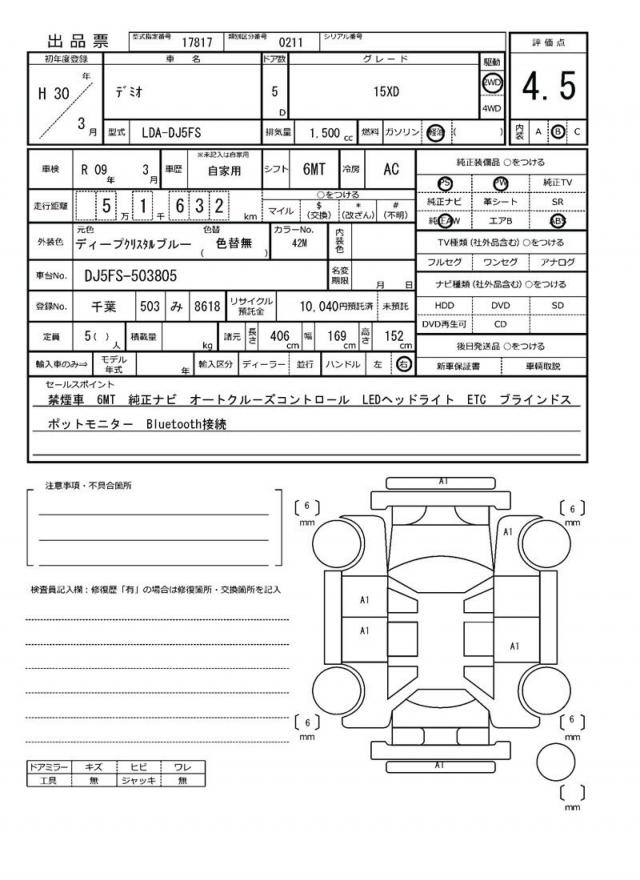 出品票 型式指定番号 17817 類別区分番号 0211 シリアル番号
初年度登録 車名 ドア数 グレード 駆動 評価点
H 30 年 3 月 デミオ 5 D 15XD 2WD 4WD 4.5
型式 LDA-DJ5FS 排気量 1,500 cc 燃料 ガソリン 軽油 ( ) 内装 A B C
車検 R 09 年 3 月 車歴 ※未記入は自家用 自家用 シフト 6MT 冷房 AC 純正装備品 ○をつける
PS PW 純正TV
走行距離 5 万 1 千 6 3 2 km ○をつける 純正ナビ 革シート SR
マイル $ (交換) * (改ざん) # (不明) 純正AW エアB ABS
外装色 元色 ディープクリスタルブルー 色替 ( 色替無 ) カラーNo. 42M 内装色 TV種類 (社外品含む) ○をつける
フルセグ ワンセグ アナログ
車台No. DJ5FS-503805 名変期限 月 日 ナビ種類 (社外品含む) ○をつける
登録No. 千葉 503 み 8618 リサイクル預託金 10,040円預託済 未預託 HDD DVD SD
DVD再生可 CD
定員 5( ) 人 積載量 kg 諸元 長さ 406 cm 幅 169 cm 高さ 152 cm 後日発送品 ○をつける
輸入車のみ⇒ モデル年式 年 輸入区分 ディーラー 並行 ハンドル 左 右 新車保証書 車輌取説
セールスポイント
禁煙車 6MT 純正ナビ オートクルーズコントロール LEDヘッドライト ETC ブラインドス
ポットモニター Bluetooth接続
注意事項・不具合箇所
A1
[ 6 ] mm [ 6 ] mm
A1
検査員記入欄：修復歴「有」の場合は修復箇所・交換箇所を記入
A1
A1
A1
[ 6 ] mm [ 6 ] mm
A1
[ ] mm
ドアミラー キズ ヒビ ワレ
工具 無 ジャッキ 無